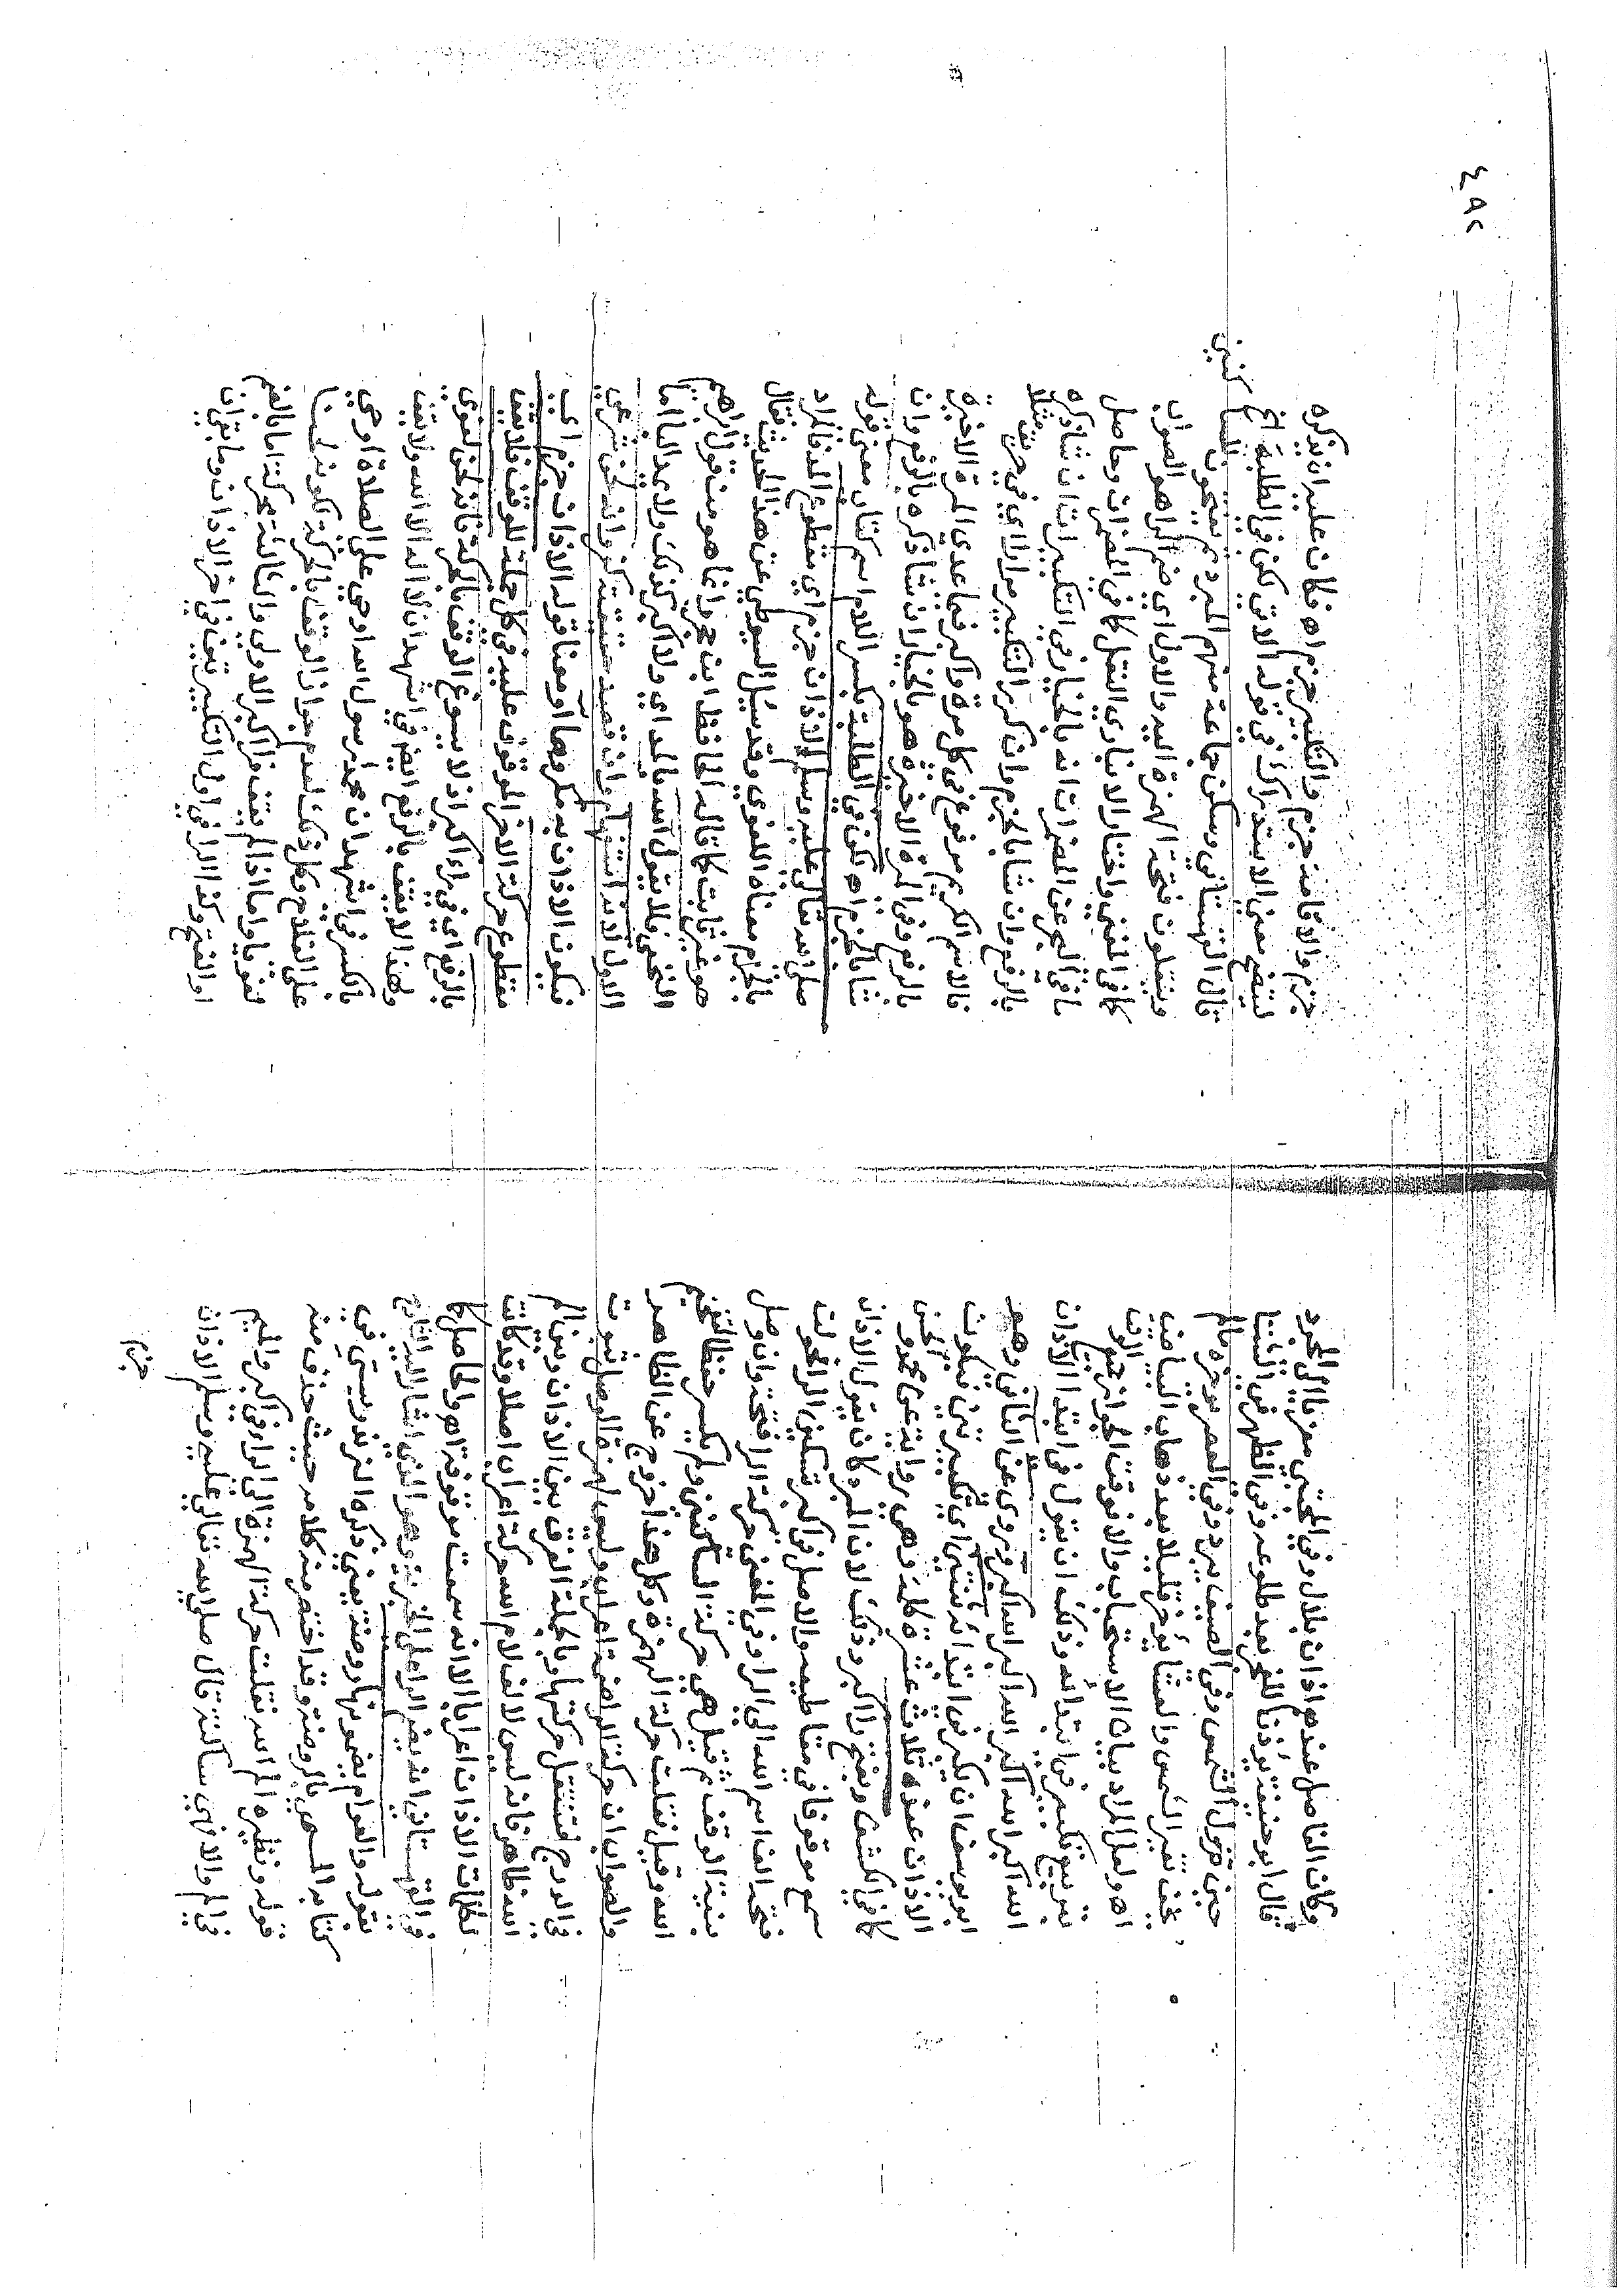 وكان الفاصل عندهم اذان بلال وفي المجتبى معزيا الى المجرد
قال ابو حنيفة يؤذن للفجر بعد طلوعه وفي الظهر في الشتا
حين تزول الشمس وفي الصيف يبرد وفي العصر يؤخره مالم
يخف تغير الشمس والعشا يؤخر قليلا بعد ذهاب البياض
اه ولعل المراد بيان الاستحباب والا فوقت الجواز جميع الوقت
بتربيع تكبير في ابتدائه وذلك ان يقول في ابتدا الاذان
الله اكبر الله اكبر الله اكبر الله اكبر وروي عن الثاني وهو
ابو يوسف ان يكبر في ابتدائه ثنتين اي تكبيرتين فيكون
الاذان عنده ثلاث عشرة كلمة وهي رواية عن محمد والحسن
كما في الكشف وبفتح را اكبر وذلك لان المبرد كان يقول الاذان
سمع موقوفا في مقاطيعه والاصل في اكبر تسكين الرا فحولت
فتحة الف اسم الله الى الرا وفي المغني حركة الرا فتحة وان وصل
بنية الوقف ثم قيل هي حركة الساكنين ولم يكسر حفظا لتفخيم
الله وقيل نقلت حركة الهمزة وكل هذا خروج عن الظاهر
والصواب ان حركة الرا ضمة اعراب وليس لهمزة الوصل ثبوت
في الدرج فتنقل حركتها وبالجملة الفرق بين الاذان وبين الم
الله ظاهر فانه ليس لالف لام الله حركة اعراب اصلا وقد كانت
لكلمات الاذان اعرابا الا انه سمعت موقوفة اه والحاصل كما
في القهستاني انه بضم الرا على الخبرية وهو الذي اشار اليه الشارح
بقوله والعوام يضمونها روضة يعني ذكره الزندويستي في
كتابه المسمى بالروضة وقد اختصر منه كلامه حيث حذف منه
قوله ونظيره الم الله نقلت حركة الهمزة الى الراء في اكبر والميم
في الم والا فهي ساكنة قال صلى الله تعالى عليه وسلم الاذان
جزم
٤٩٢
جزم والاقامة جزم والتكبير جزم اه فكان عليه ان يذكره
ليتضح معنى الاستدراك في قوله الاتي لكن في الطلبة الخ
قال القهستاني ويسكن جماعة منهم المبرد ثم يفتحون الساكنين
وينقلون فتحة الهمزة اليه والاول اي ضم الرا هو الصواب
كما في المغني واختار الانباري النقل كما في المضمرات وحاصل
ما في البحر عن المضمرات انه بالخيار في التكبير ان شاذكره
بالرفع وان شا بالجزم وان كرر التكبير مرارا اي في حريق مثلا
فالاسم الكريم مرفوع في كل مرة واكبر فيما عدى المرة الاخيرة
بالرفع وفي المرة الاخيرة هو بالخيار ان شا ذكره بالرفع وان
شا بالجزم اه لكن في الطلبة بكسر اللام اسم كتاب معنى قوله
صلى الله تعالى عليه وسلم الاذان جزم اي مقطوع المد فالمراد
بالجزم معناه اللغوي وقد سئل السيوطي عن هذا الحديث فقال
هو غير ثابت كما قاله الحافظ ابن حجر وانما هو من قول ابراهيم
النخعي فلا يقول آلله بالمد اي ولا آكبر كذلك ولا يمد البا اما
الاول لانه استفهام وان قصد حقيقته كفر وانه لحن شرعي
فيكون الاذان به مكروها او معنا قوله الاذان جزم اي
مقطوع حركة الاخر للوقوف عليه في كل جملة للوقف فلا يقف
بالرفع اي في را اكبر اذ لا يسوغ الوقف بالحركة فانه لحن لغوي
وهذا لا يقف بالرفع ايضا في اشهد ان لا اله الا الله ولا يقف
بالكسر في اشهد ان محمدا رسول الله او حي على الصلاة او حي
على الفلاح وكل ذلك لعدم جواز الوقف بالحركة لكونه لحنا
لغويا واما اذا لم يقف في اكبر الاولى والثالثة بحركة اما بالضم
او الفتح وكذا الرا في اول التكبيرتين في اخر الاذان وما بقي ان